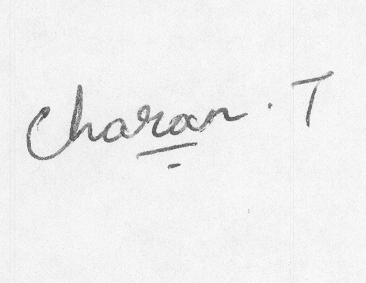 Charan. T